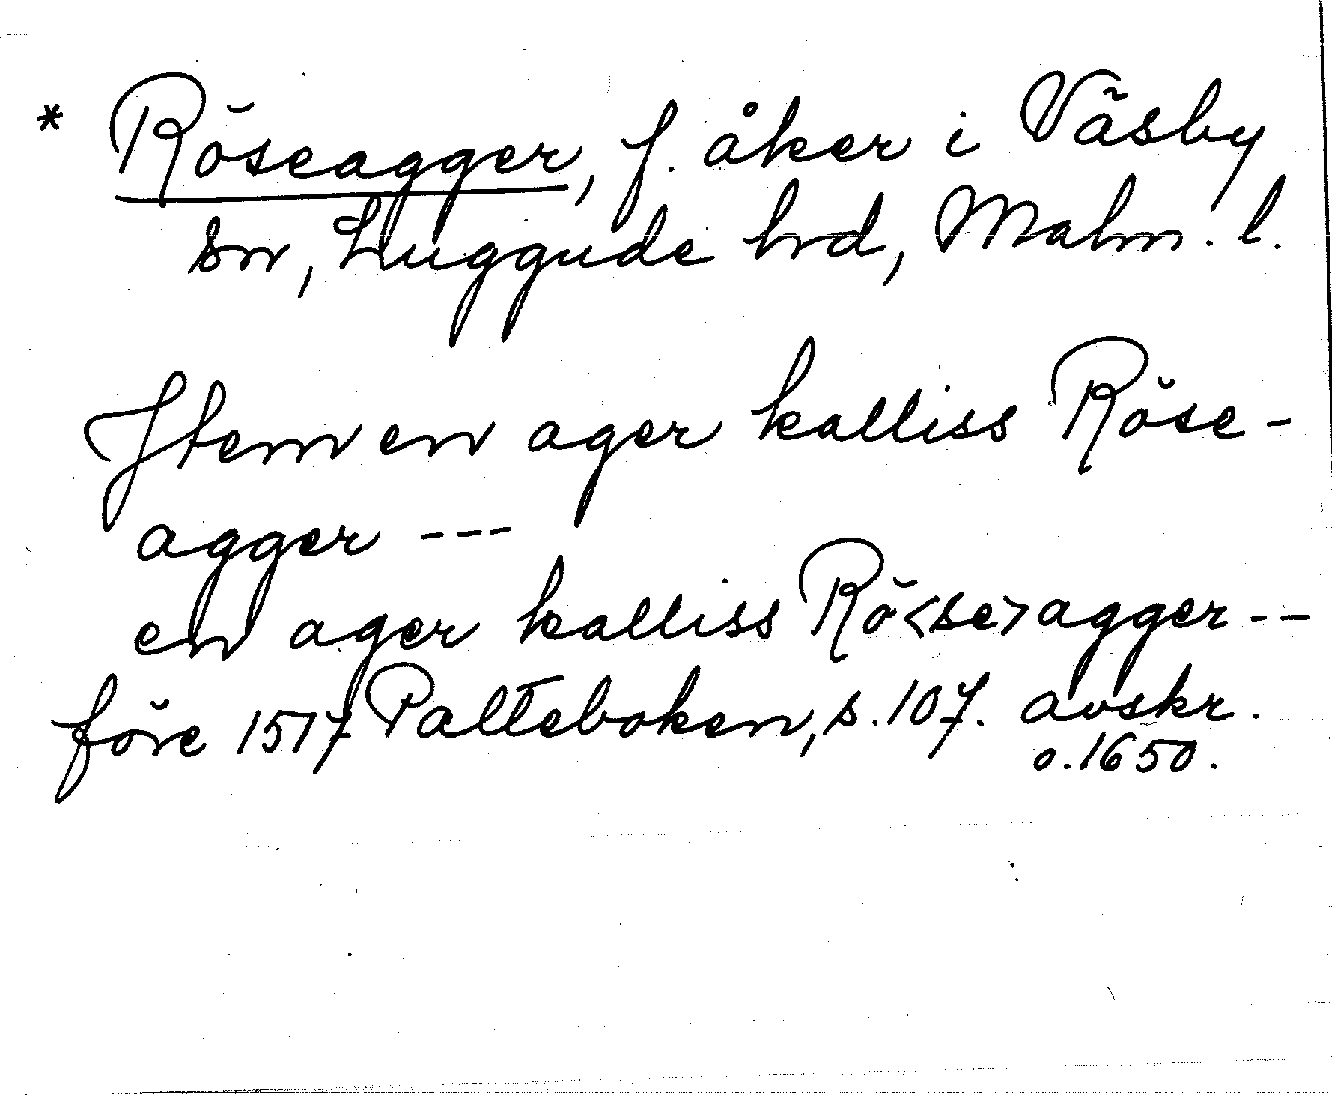 * Röseagger, f. åker i Väsby
sn, Luggude hrd, Malm. l.
Item en ager kalliss Röse-
agger ---
en ager kalliss Rö<se>agger --
före 1517 Palteboken, s. 107. avskr.
o. 1650.